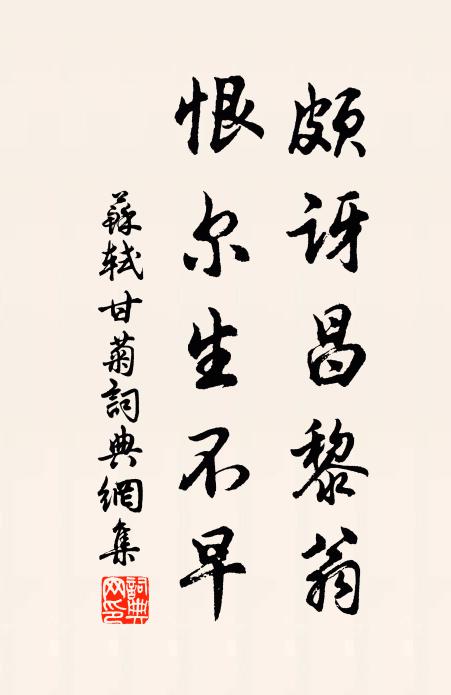 頗訝昌黎翁
恨尔生不早
蘇軾甘菊詞典網集
詞典网印